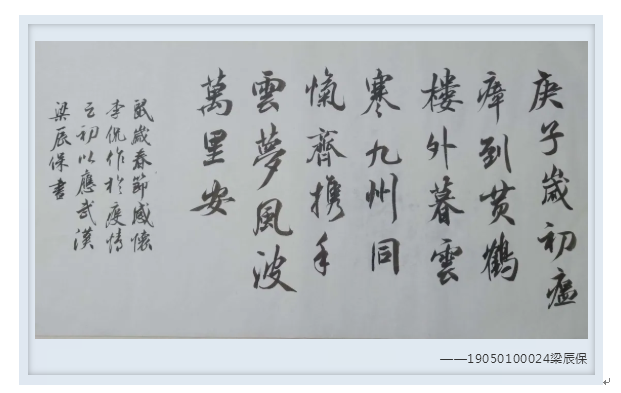 庚子歲初瘟
瘴到黄鶴
楼外暮雲
寒九州同
愾齊携手
雲夢風波
萬里安
鼠歲春節感懷
李侃作於疫情
之初以應武漢
梁辰保書
——19050100024梁辰保